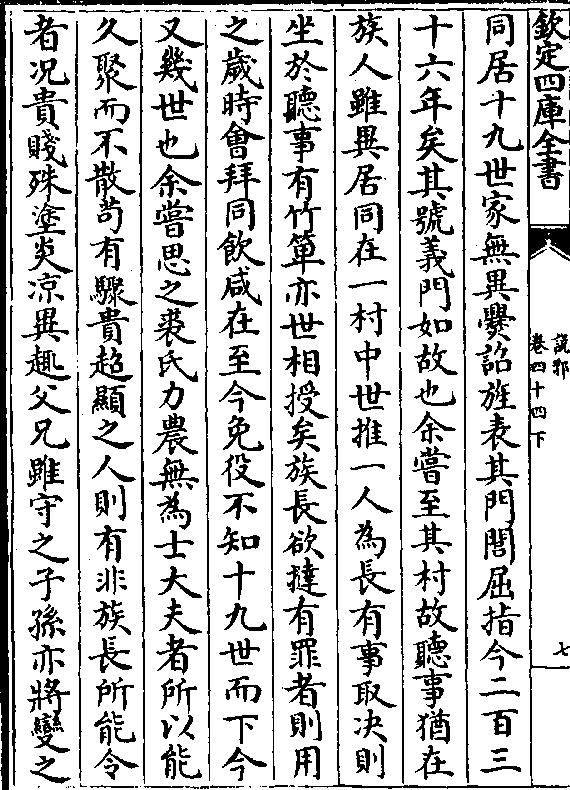 欽定四庫全書
說郛
卷四十四下
七
同居十九世家無異爨詔旌表其門閭屈指今二百三
十六年矣其號義門如故也余嘗至其村故聽事猶在
族人雖異居同在一村中世推一人為長有事取决則
坐於聽事有竹箄亦世相授矣族長欲撻有罪者則用
之歲時會拜同飲咸在至今免役不知十九世而下今
又幾世也余嘗思之裘氏力農無為士大夫者所以能
久聚而不散苟有驟貴超顯之人則有非族長所能令
者况貴賤殊塗炎凉異趣父兄雖守之子孫亦將變之